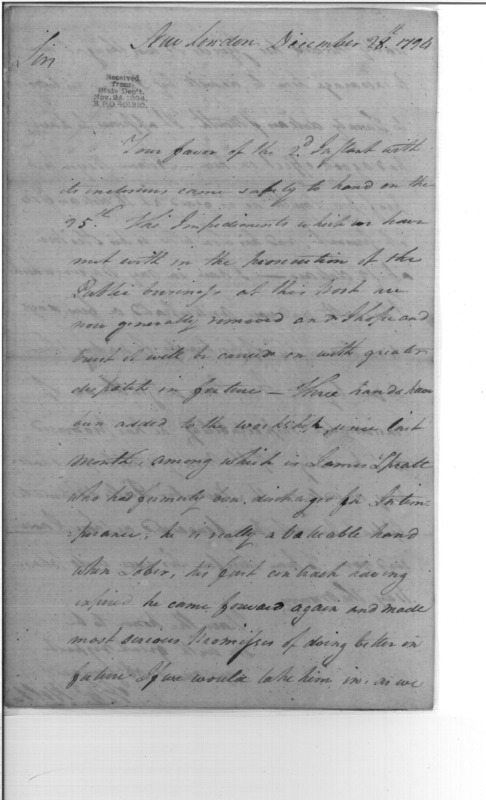 New London December 28th 1794
Sir
Received
from
State Dept.
Your favor of the 2d Instant with
its inclosures came safely to hand on the
25th. The Impediments which we have
met with in the prosecution of the
Public business at this Post are
now generally removed and I hope and
trust it will be carried on with greater
dispatch in future – Three hands have
been added to the workshop since last
month, among which is James Spratt
who had formerly been discharged for Intem-
:perance, he is really a valuable hand
when Sober, his first contract having
expired he came forward again and made
most serious Promisses of doing better in
future If we would take him in, as we